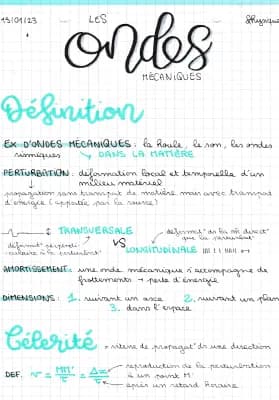 13/01/23 LES physique
ondes
MÉCANIQUES
Définition
EX D'ONDES MECANIQUES : la houle, le son, les ondes
sismiques DANS LA MATIÈRE
PERTURBATION : déformation local et temporelle d'un
milieu matériel
propagation sans transport de matière mais avec transport
d'énergie (apportée par la source)
TRANSVERSALE déformat° ds la m̂ direct°
que la perturbat°
déformat° perpendi- VS LONGITUDINALE
culaire à la perturbat°
AMORTISSEMENT : une onde mécanique s'accompagne de
frottements → perte d'énergie
DIMENSIONS : 1. suivant un axe 2. suivant un plan
3. dans l'espace
Célérité = vitesse de propagat° ds une direction
DEF. v = MM' / τ = Δx / τ reproduction de la perturbation
à un point M'
après un retard horaire